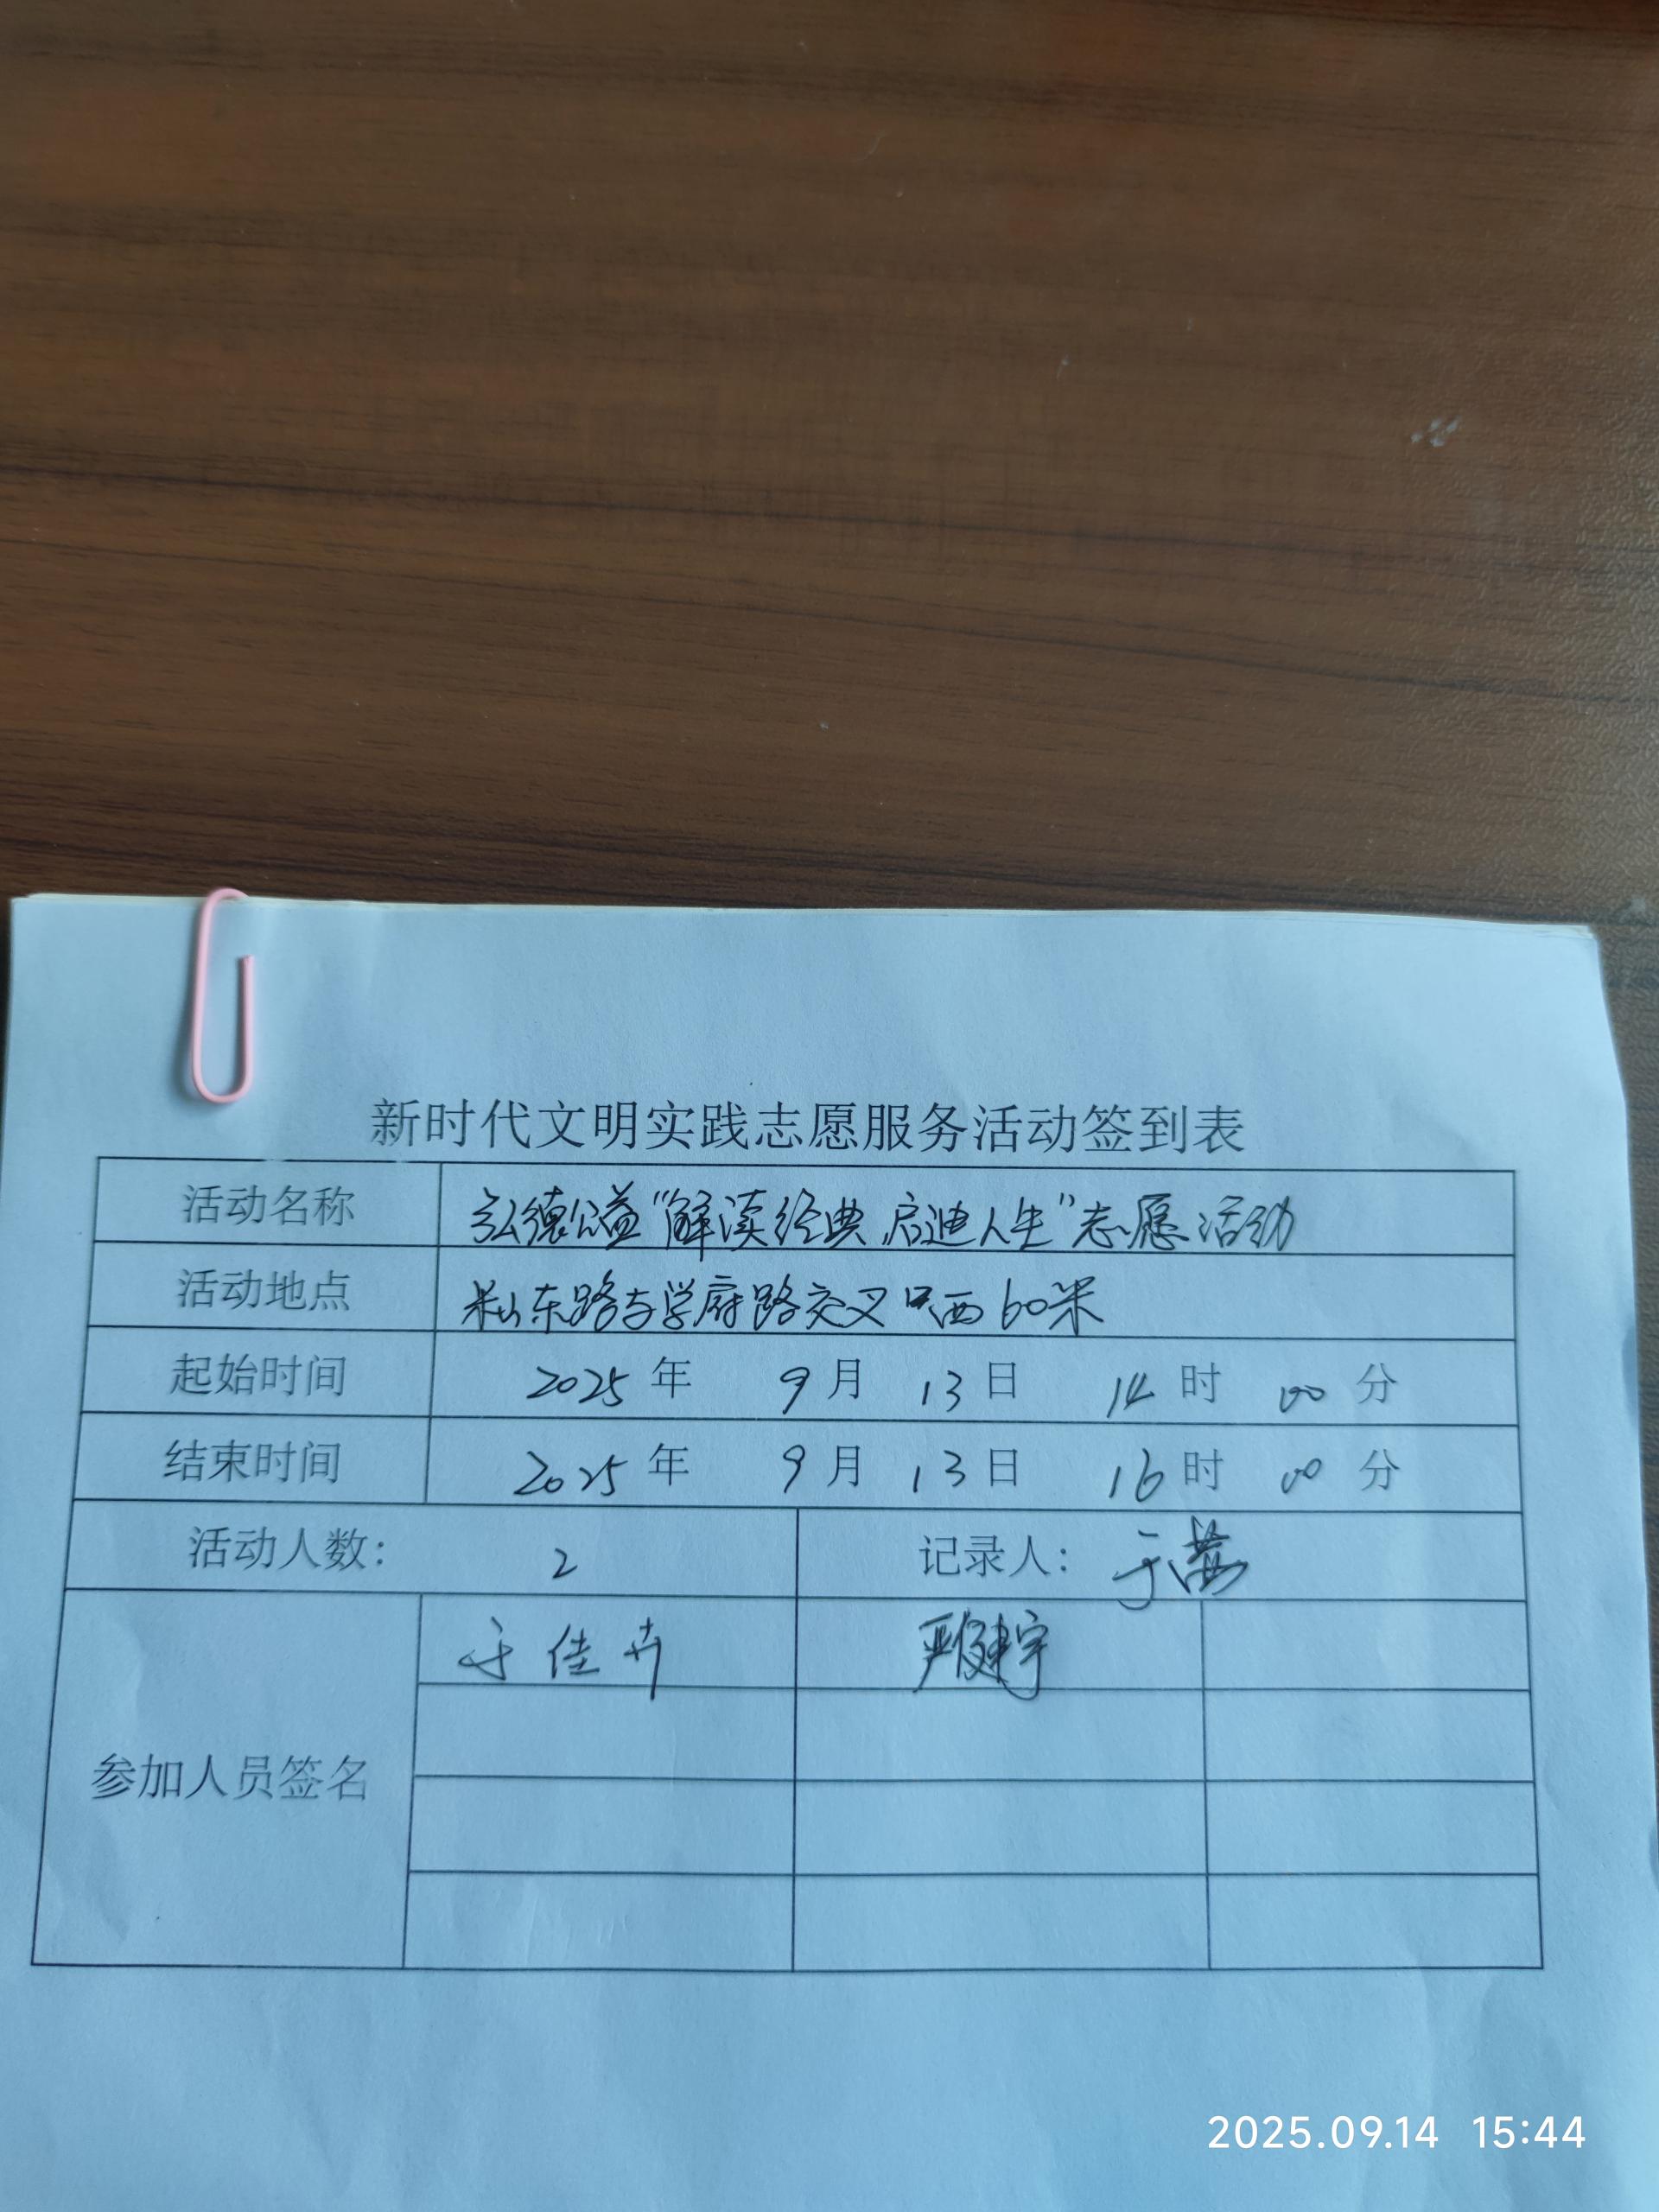 新时代文明实践志愿服务活动签到表
活动名称 弘德公益“解读经典,启迪人生”志愿活动
活动地点 米山东路与学府路交叉口西60米
起始时间 2025年 9月 13日 14时 00分
结束时间 2025年 9月 13日 16时 00分
活动人数: 2 记录人: 于
参加人员签名 于佳卉 严俊宇
2025.09.14 15:44